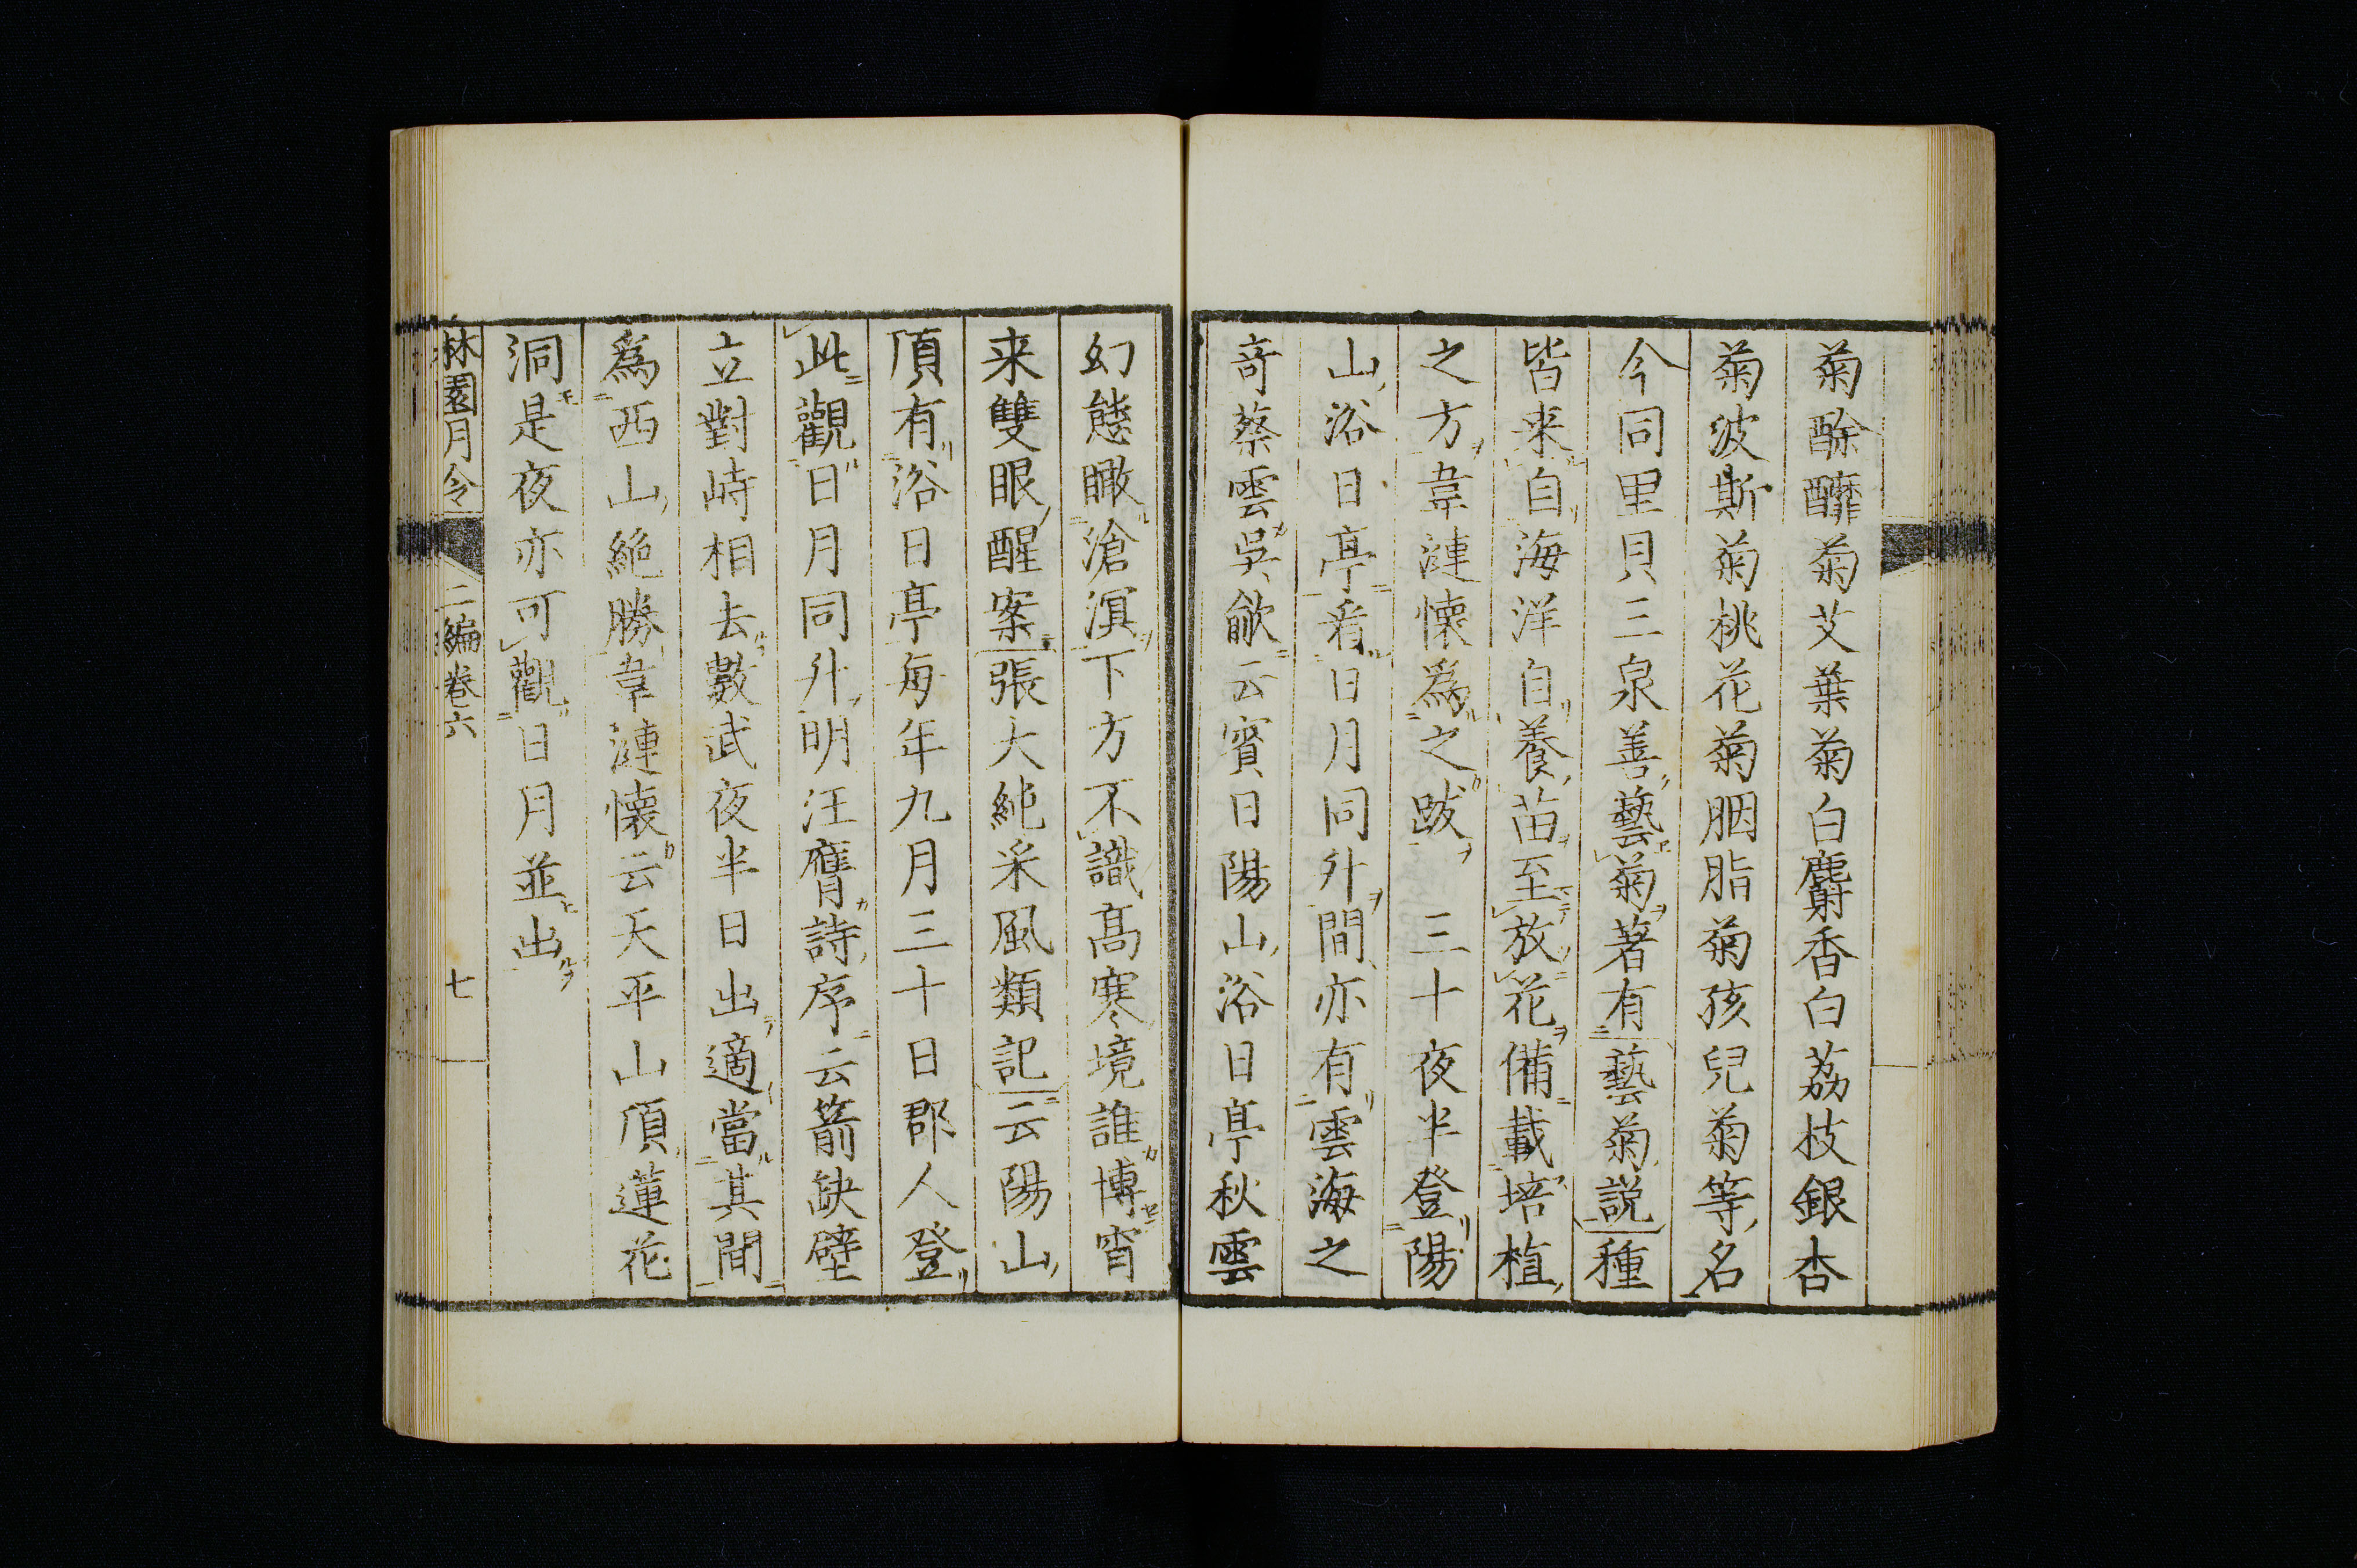 菊酴醿菊艾葉菊白麝香白荔枝銀杏
菊波斯菊桃花菊胭脂菊孩兒菊等名
今同里貝三泉善藝菊著有藝菊説種
皆来自海洋自養苗至放花備載培植
之方韋漣懐為之跋 三十夜半登陽
山浴日亭看日月同升間亦有雲海之
奇蔡雲吳歈云賓日陽山浴日亭秋雲
幻態瞰滄溟下方不識髙寒境誰博宵
来雙眼醒案張大純采風類記云陽山
頂有浴日亭每年九月三十日郡人登
此觀日月同升明汪膺詩序云箭缺壁
立對峙相去數武夜半日出適當其間
為西山絶勝韋漣懐云天平山頂蓮花
洞是夜亦可觀日月並出
林園月令 二編卷六 七